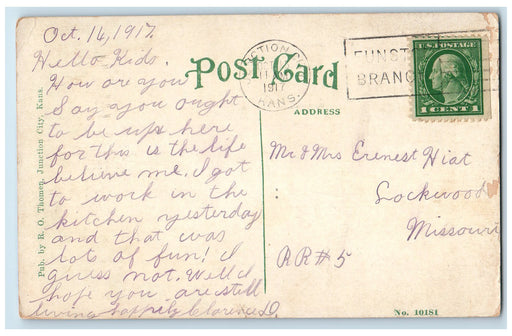 Oct. 16, 1917.
Hello Kids.
How are you
Say you ought
to be up here
for this is the life
believe me. I got
to work in the
kitchen yesterday
and that was
lots of fun! I
guess not. Well I
hope you are still
living happily Clarence D.
Pub. by R. O. Thomen, Junction City, Kans.
Post Card
ADDRESS
JUNCTION CITY
1917
KANS.
FUNSTON
BRANCH
U.S. POSTAGE
1 CENT 1
Mr & Mrs Erenest Hiat
Lockwood
Missouri
R R # 5
No. 10181